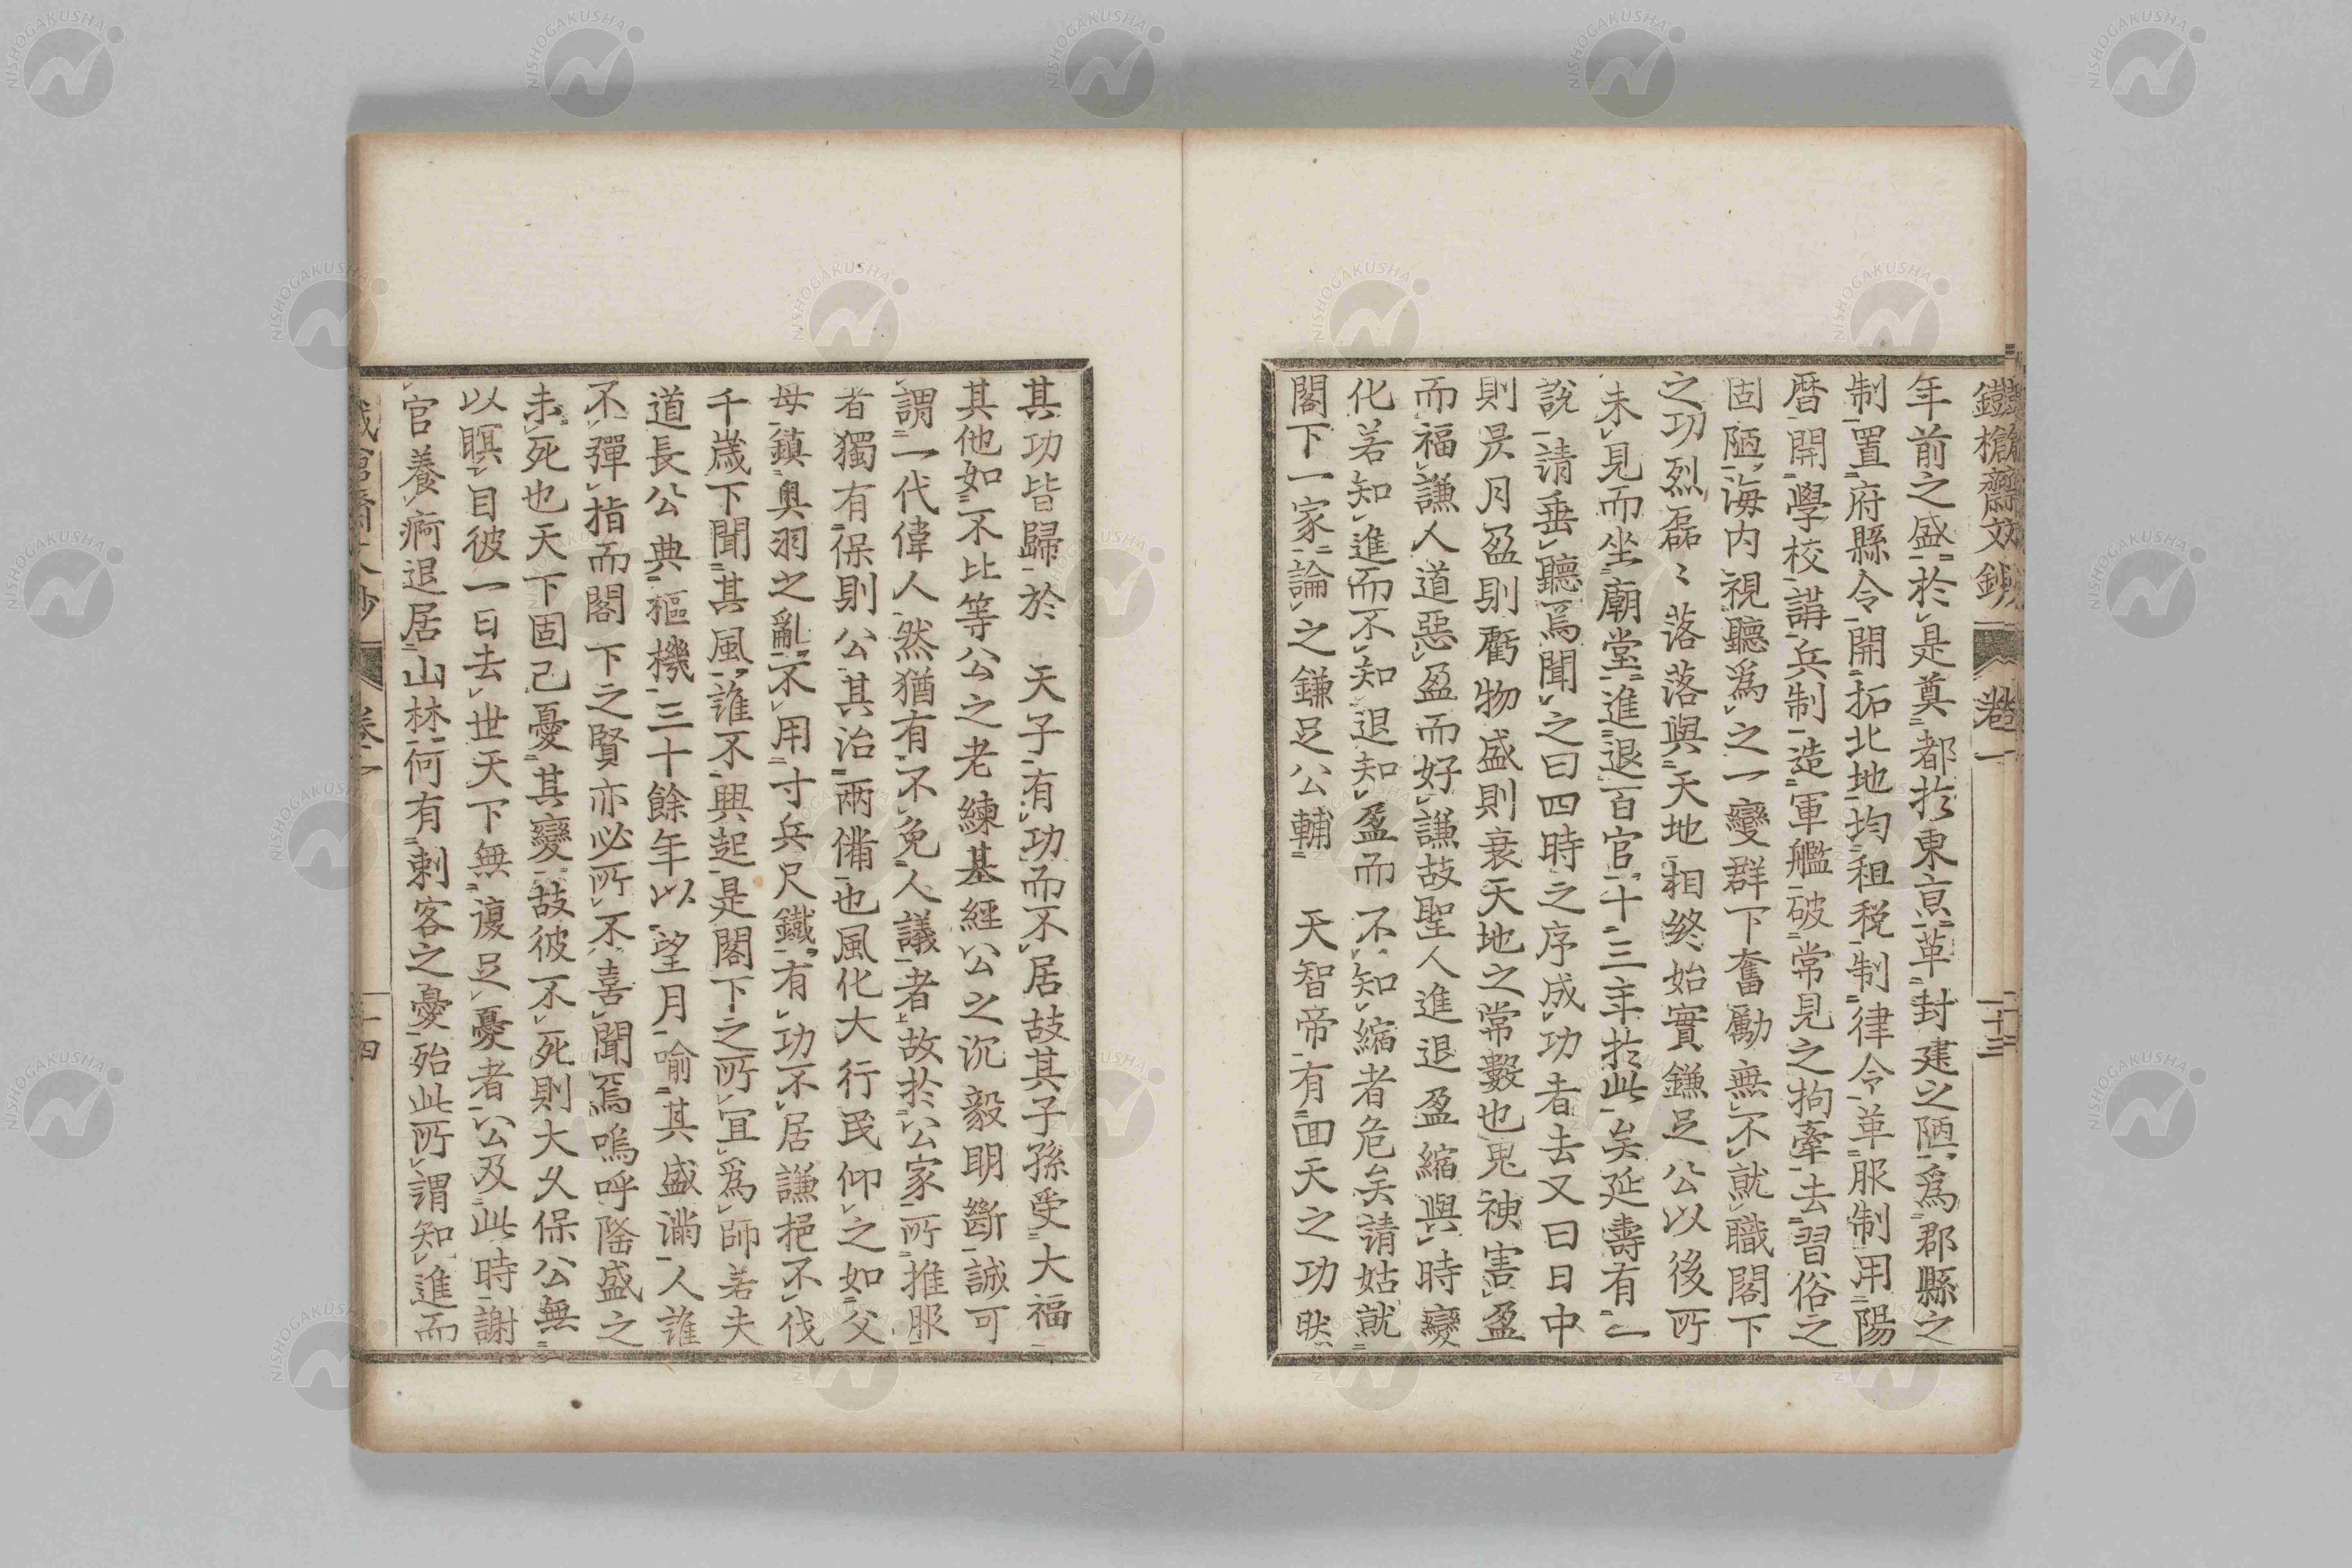 鐵槍齋文鈔 卷一 二十三
年前之盛於是奠都於東京革封建之陋爲郡縣之
制置府縣令開拓北地均租税制律令革服制用陽
暦開學校講兵制造軍艦破常見之拘牽去習俗之
固陋海内視聽爲之一變群下奮勵無不就職閣下
之功烈磊〻落落與天地相終始實鎌足公以後所
未見而坐廟堂進退百官十三年於此矣延壽有一
説請垂聽焉聞之曰四時之序成功者去又曰日中
則昃月盈則虧物盛則衰天地之常數也鬼神害盈
而福謙人道惡盈而好謙故聖人進退盈縮與時變
化若知進而不知退知盈而不知縮者危矣請姑就
閣下一家論之鎌足公輔 天智帝有回天之功然
其功皆歸於 天子有功而不居故其子孫受大福
其他如不比等公之老練基經公之沉毅明斷誠可
謂一代偉人然猶有不免人議者故於公家所推服
者獨有保則公其治兩備也風化大行民仰之如父
母鎮奥羽之亂不用寸兵尺鐵有功不居謙挹不伐
千歳下聞其風誰不興起是閣下之所宜爲師若夫
道長公典樞機三十餘年以望月喻其盛滿人誰
不彈指而閣下之賢亦必所不喜聞焉嗚呼隆盛之
未死也天下固已憂其變故彼不死則大久保公無
以瞑目彼一日去世天下無復足憂者公及此時謝
官養痾退居山林何有刺客之憂殆此所謂知進而
卷一